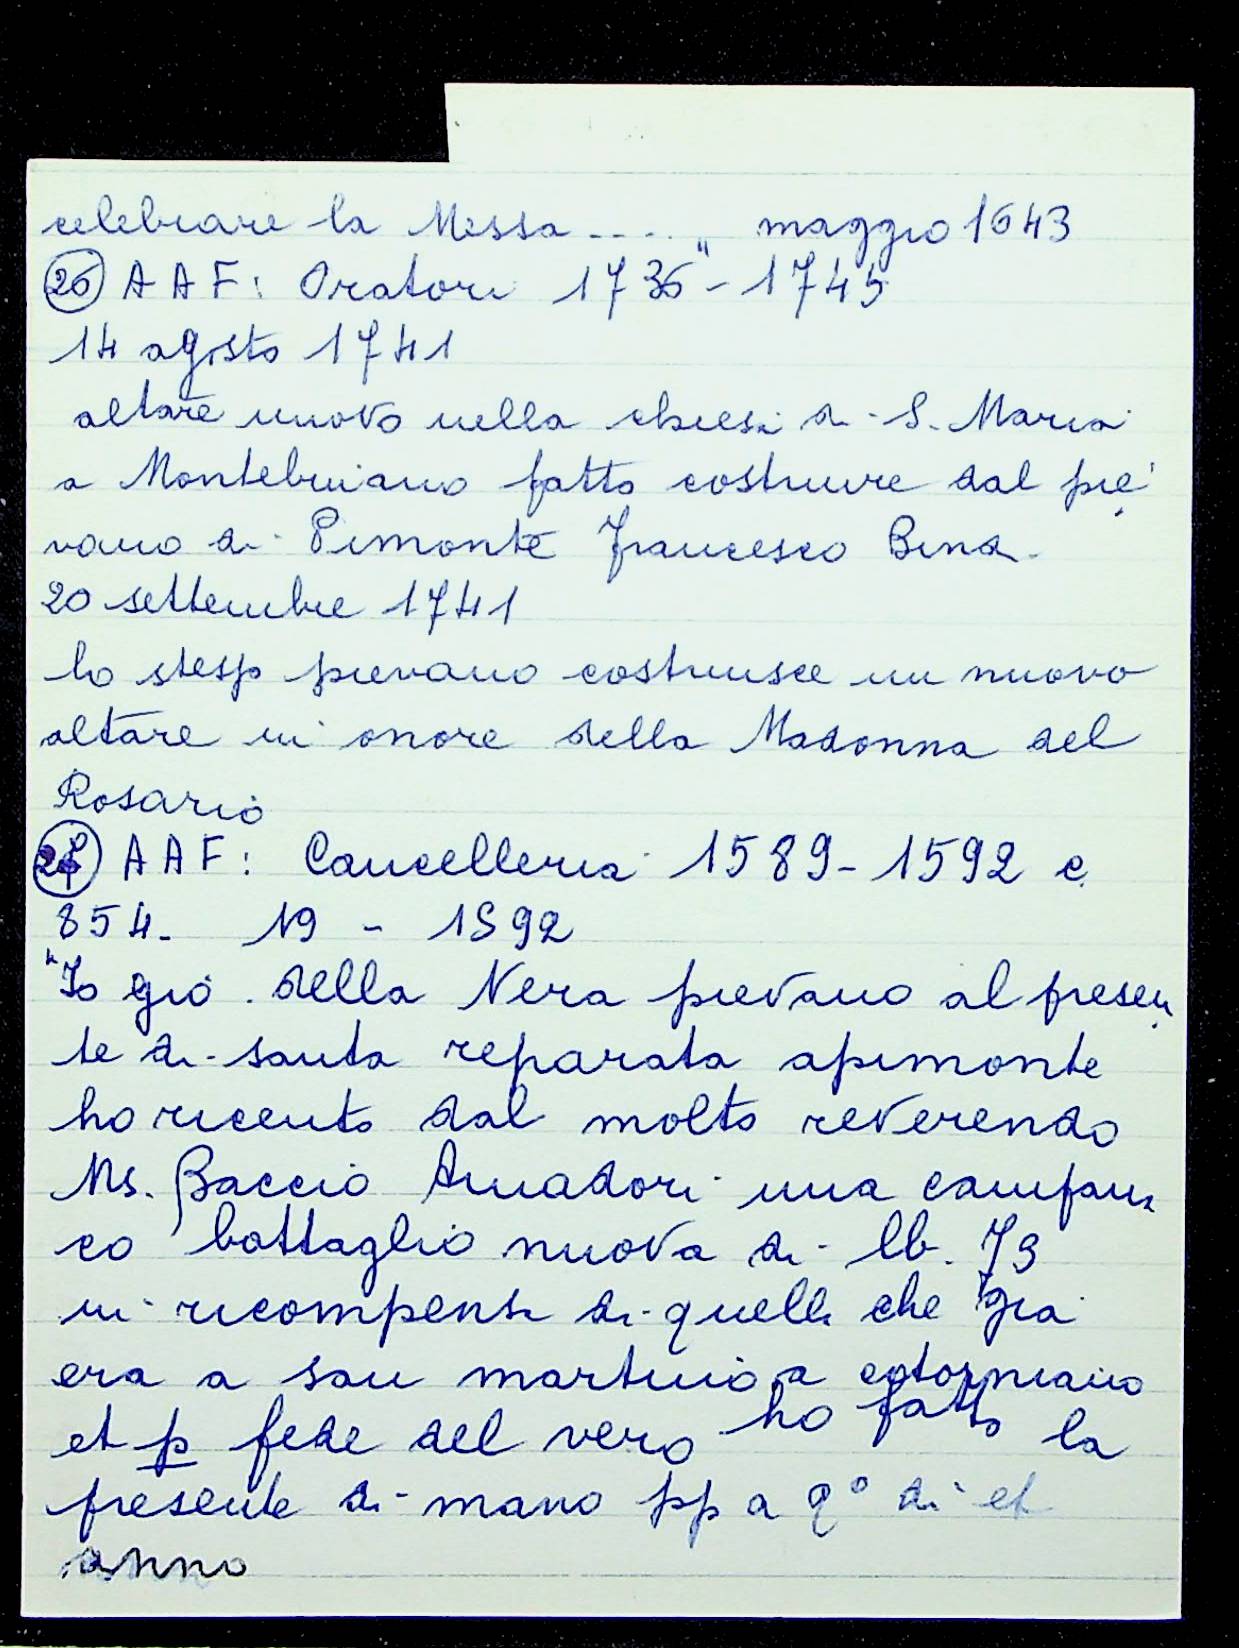 celebrare la Messa ....." maggio 1643
(26) AAF: Oratori 1736-1745
14 agosto 1741
altare nuovo nella chiesa di S. Maria
a Montebuiano fatto costruire dal pie
vano di Pimonte Francesco Bina.
20 settembre 1741
lo stesso pievano costruisce un nuovo
altare in onore della Madonna del
Rosario
AAF: Cancelleria 1589-1592 c.
854. 19 - 1592
"Io giò. della Nera pievano al presen
te di santa reparata apimonte
ho riceuto dal molto reverendo
Ms. Baccio Amadori una campana
co battaglio nuova di lb. 73
in ricompensa di quella che già
era a san martino a
et p fede del vero ho fatto la
presente di mano pp a q° dì et
anno